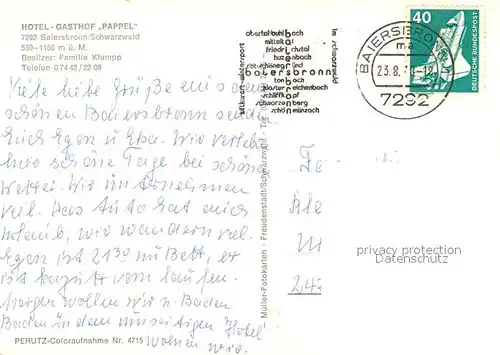 HOTEL - GASTHOF „PAPPEL"
7292 Baiersbronn/Schwarzwald
550-1150 m ü. M.
Besitzer: Familie Klumpp
Telefon 0 74 42 / 22 08
Viele liebe Grüße aus dem
schönen Baiersbronn senden
Euch Egon und Elsa. Wir verleben
hier schöne Tage bei schönem
Wetter. Wir unternehmen
viel. Das Auto hat auch
Urlaub, wir wandern viel.
Egon ist 21.30 im Bett, er
ist kaputt vom laufen.
Morgen wollen wir n. Baden
Baden in dem umseitigen Hotel
wohnen wir.
PERUTZ-Coloraufnahme Nr. 4715
Müller-Fotokarten - Freudenstadt/Schwarzwald
luftkurort-wintersport
obertal buhlbach
mitteltal
friedrichstal
huzenbach
rötschönegründ
baiersbronn
tonbach
kloster reichenbach
schliffkopf
schwarzenberg
schönmünzach
im schwarzwald
BAIERSBRONN
ma
23.8.
7292
40
DEUTSCHE BUNDESPOST
privacy protection
Datenschutz